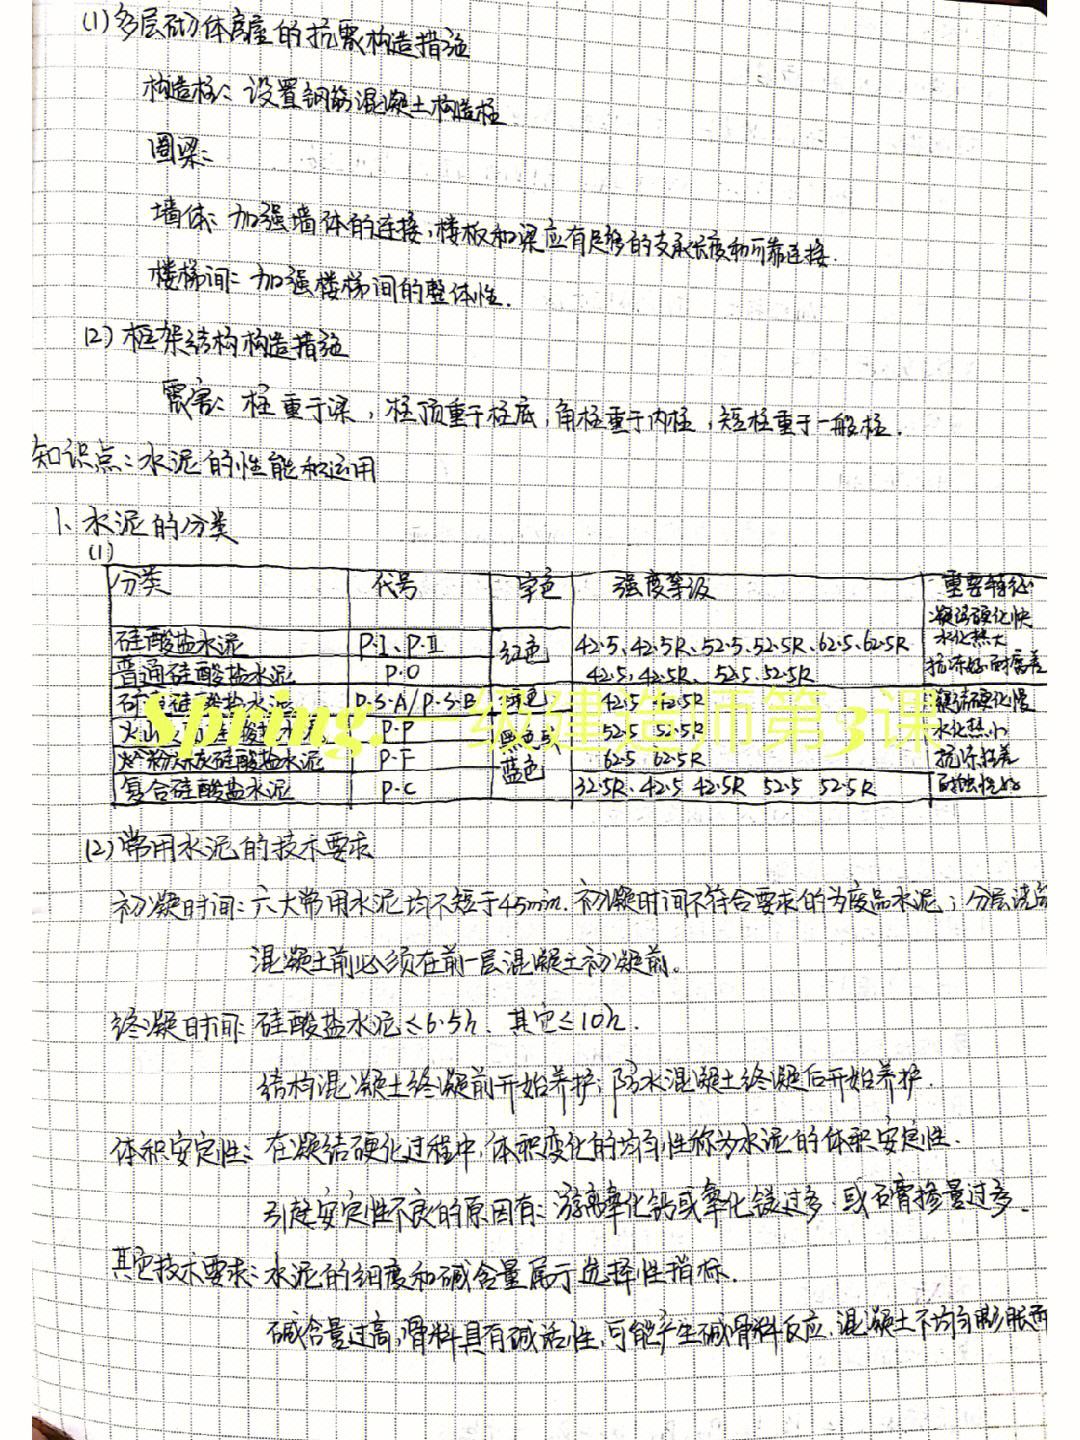 (1)多层砌体房屋的抗震构造措施
构造柱:设置钢筋混凝土构造柱
圈梁:
墙体:加强墙体的连接,楼板和梁应有足够的支承长度和可靠连接.
楼梯间:加强楼梯间的整体性.
(2)框架结构构造措施
震害:柱重于梁,柱顶重于柱底,角柱重于内柱,短柱重于一般柱.
知识点:水泥的性能和运用
1、水泥的分类
(1)
分类 代号 字色 强度等级 重要特征
硅酸盐水泥 P·I、P·II 红色 42.5、42.5R、52.5、52.5R、62.5、62.5R 凝结硬化快 水化热大
普通硅酸盐水泥 P·O 42.5、42.5R、52.5、52.5R 抗冻好 耐腐差
硅酸盐水泥 P·S·A/P·S·B 绿色 42.5 42.5R 凝结硬化慢
火山 水 P·P 黑色或 52.5 52.5R 水化热小
粉煤灰硅酸盐水泥 P·F 蓝色 62.5 62.5R 抗冻较差
复合硅酸盐水泥 P·C 32.5R、42.5 42.5R 52.5 52.5R 耐蚀性好
Spring.一级建造师第3课
(2)常用水泥的技术要求
初凝时间:六大常用水泥均不短于45min.初凝时间不符合要求的为废品水泥;分层浇
混凝土前必须在前一层混凝土初凝前。
终凝时间:硅酸盐水泥≤6.5h.其它≤10h.
结构混凝土终凝前开始养护;防水混凝土终凝后开始养护.
体积安定性:在凝结硬化过程中,体积变化的均匀性称为水泥的体积安定性.
引起安定性不良的原因有:游离氧化钙或氧化镁过多.或石膏掺量过多.
其它技术要求:水泥的细度和碱含量属于选择性指标.
碱含量过高,骨料具有碱活性,可能产生碱骨料反应.混凝土不均匀膨胀